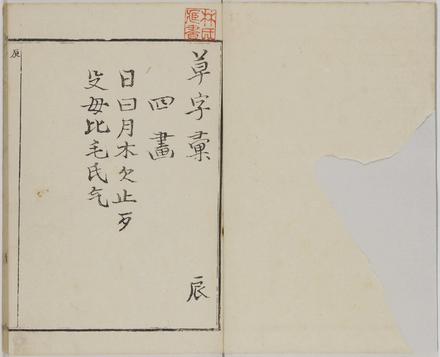 草字彙 辰
四畫
日曰月木欠止歹
殳毋比毛氏气
辰